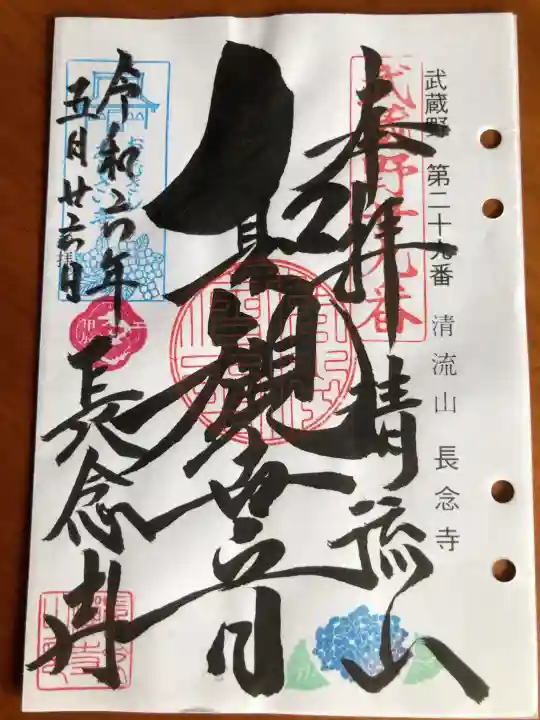 武蔵野 第二十九番 清流山 長念寺
武蔵野廿九番
奉拝 清流山
聖観世音
令和六年
五月廿六日
長念寺